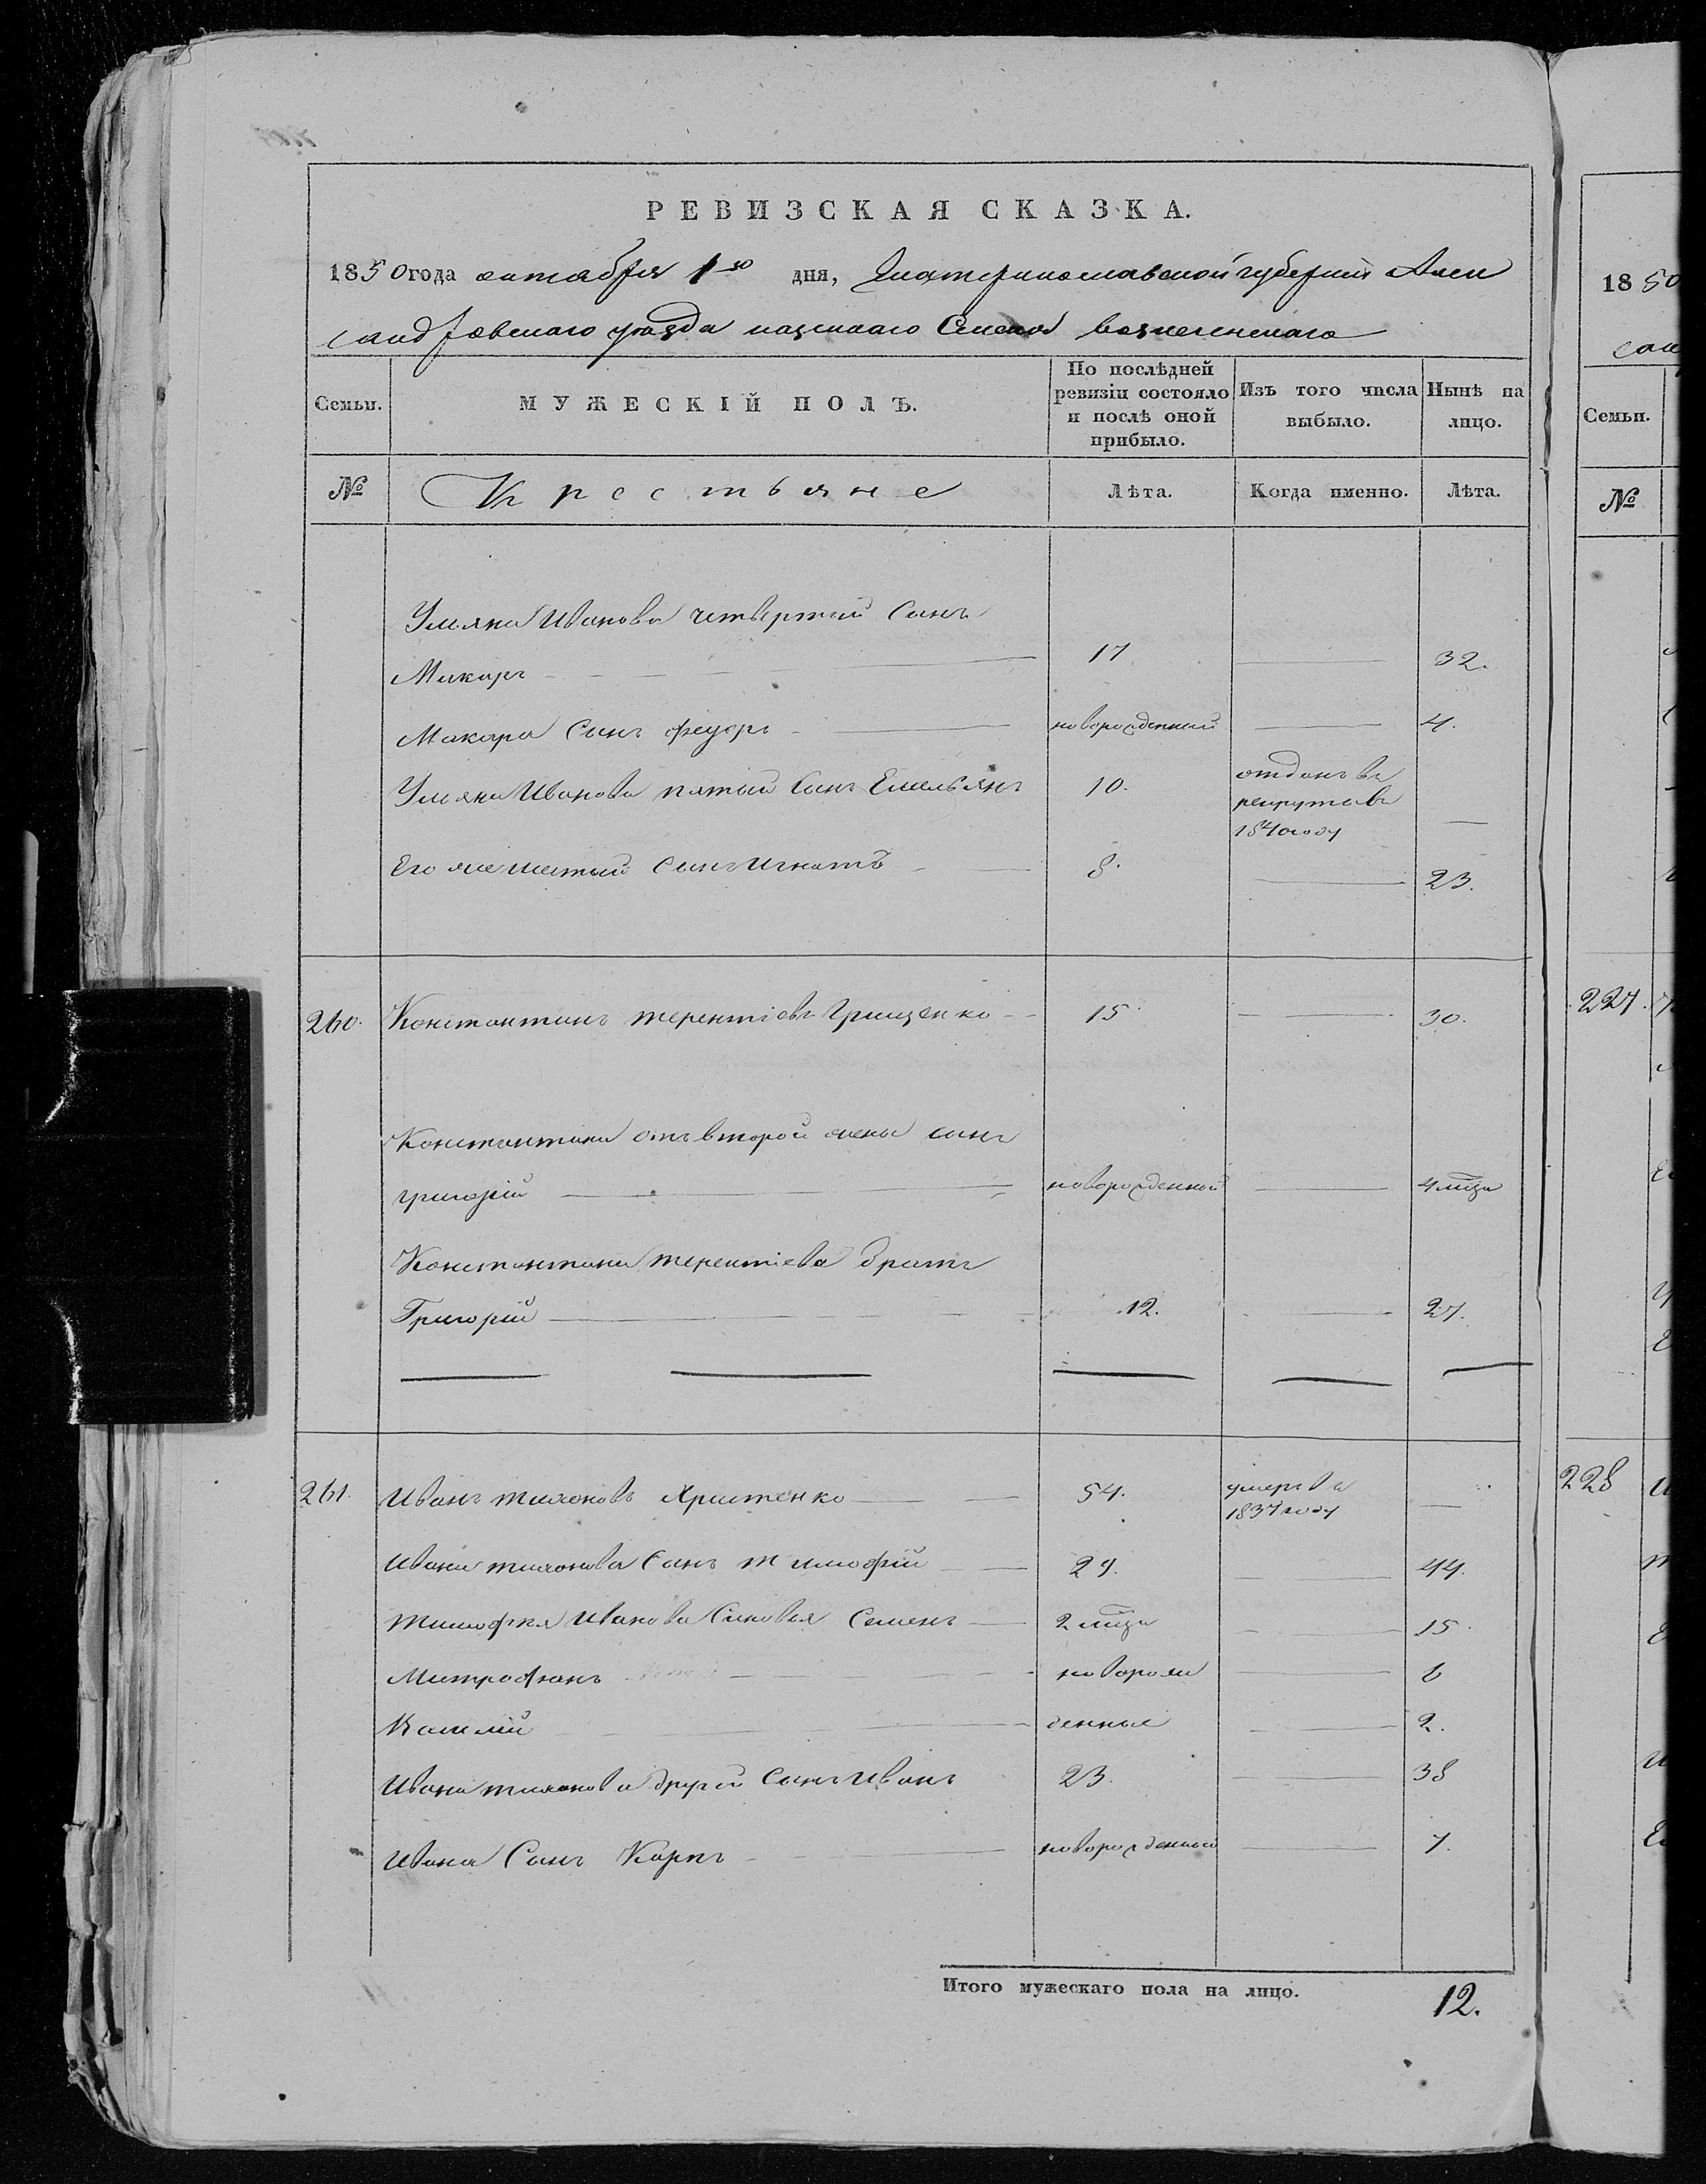 РЕВИЗСКАЯ СКАЗКА.
1850 года октября 1го дня, Екатеринославской губернии Алек
сандровскаго уезда казеннаго Селения вознесенскаго
Семьи.
МУЖЕСКІЙ ПОЛЪ.
По послѣдней ревизіи состояло и послѣ оной прибыло.
Изъ того числа выбыло.
Нынѣ на лицо.
№ Крестьяне Лѣта. Когда именно. Лѣта.
Ульяна Иванова четвертый Сынъ
Макаръ 17 32.
Макара Сынъ федоръ новорожденный 4.
Ульяна Иванова пятый Сынъ Емельянъ 10. отданъ въ
рекруты въ
1840 году
Его же шестый сынъ Игнатъ 8. 23.
260. Константинъ терентіевъ Грищенко 15. 30.
Константина отъ второй жены сынъ
григорій новорожденной 4 мца
Константина терентіева братъ
Григорій 12. 27.
261. Иванъ тихоновъ Христенко 54. умеръ въ
1837 году
Ивана тихонова Сынъ тимофій 29. 44.
тимофея Иванова Сыновья Семенъ 2 мца 15.
Митрофанъ новорож 6
Василій денные 2.
Ивана тихонова другой Сынъ Иванъ 23. 38
Ивана Сынъ Карпъ новорожденной 7.
Итого мужескаго пола на лицо. 12.
1850
Семьи.
№
227.
228